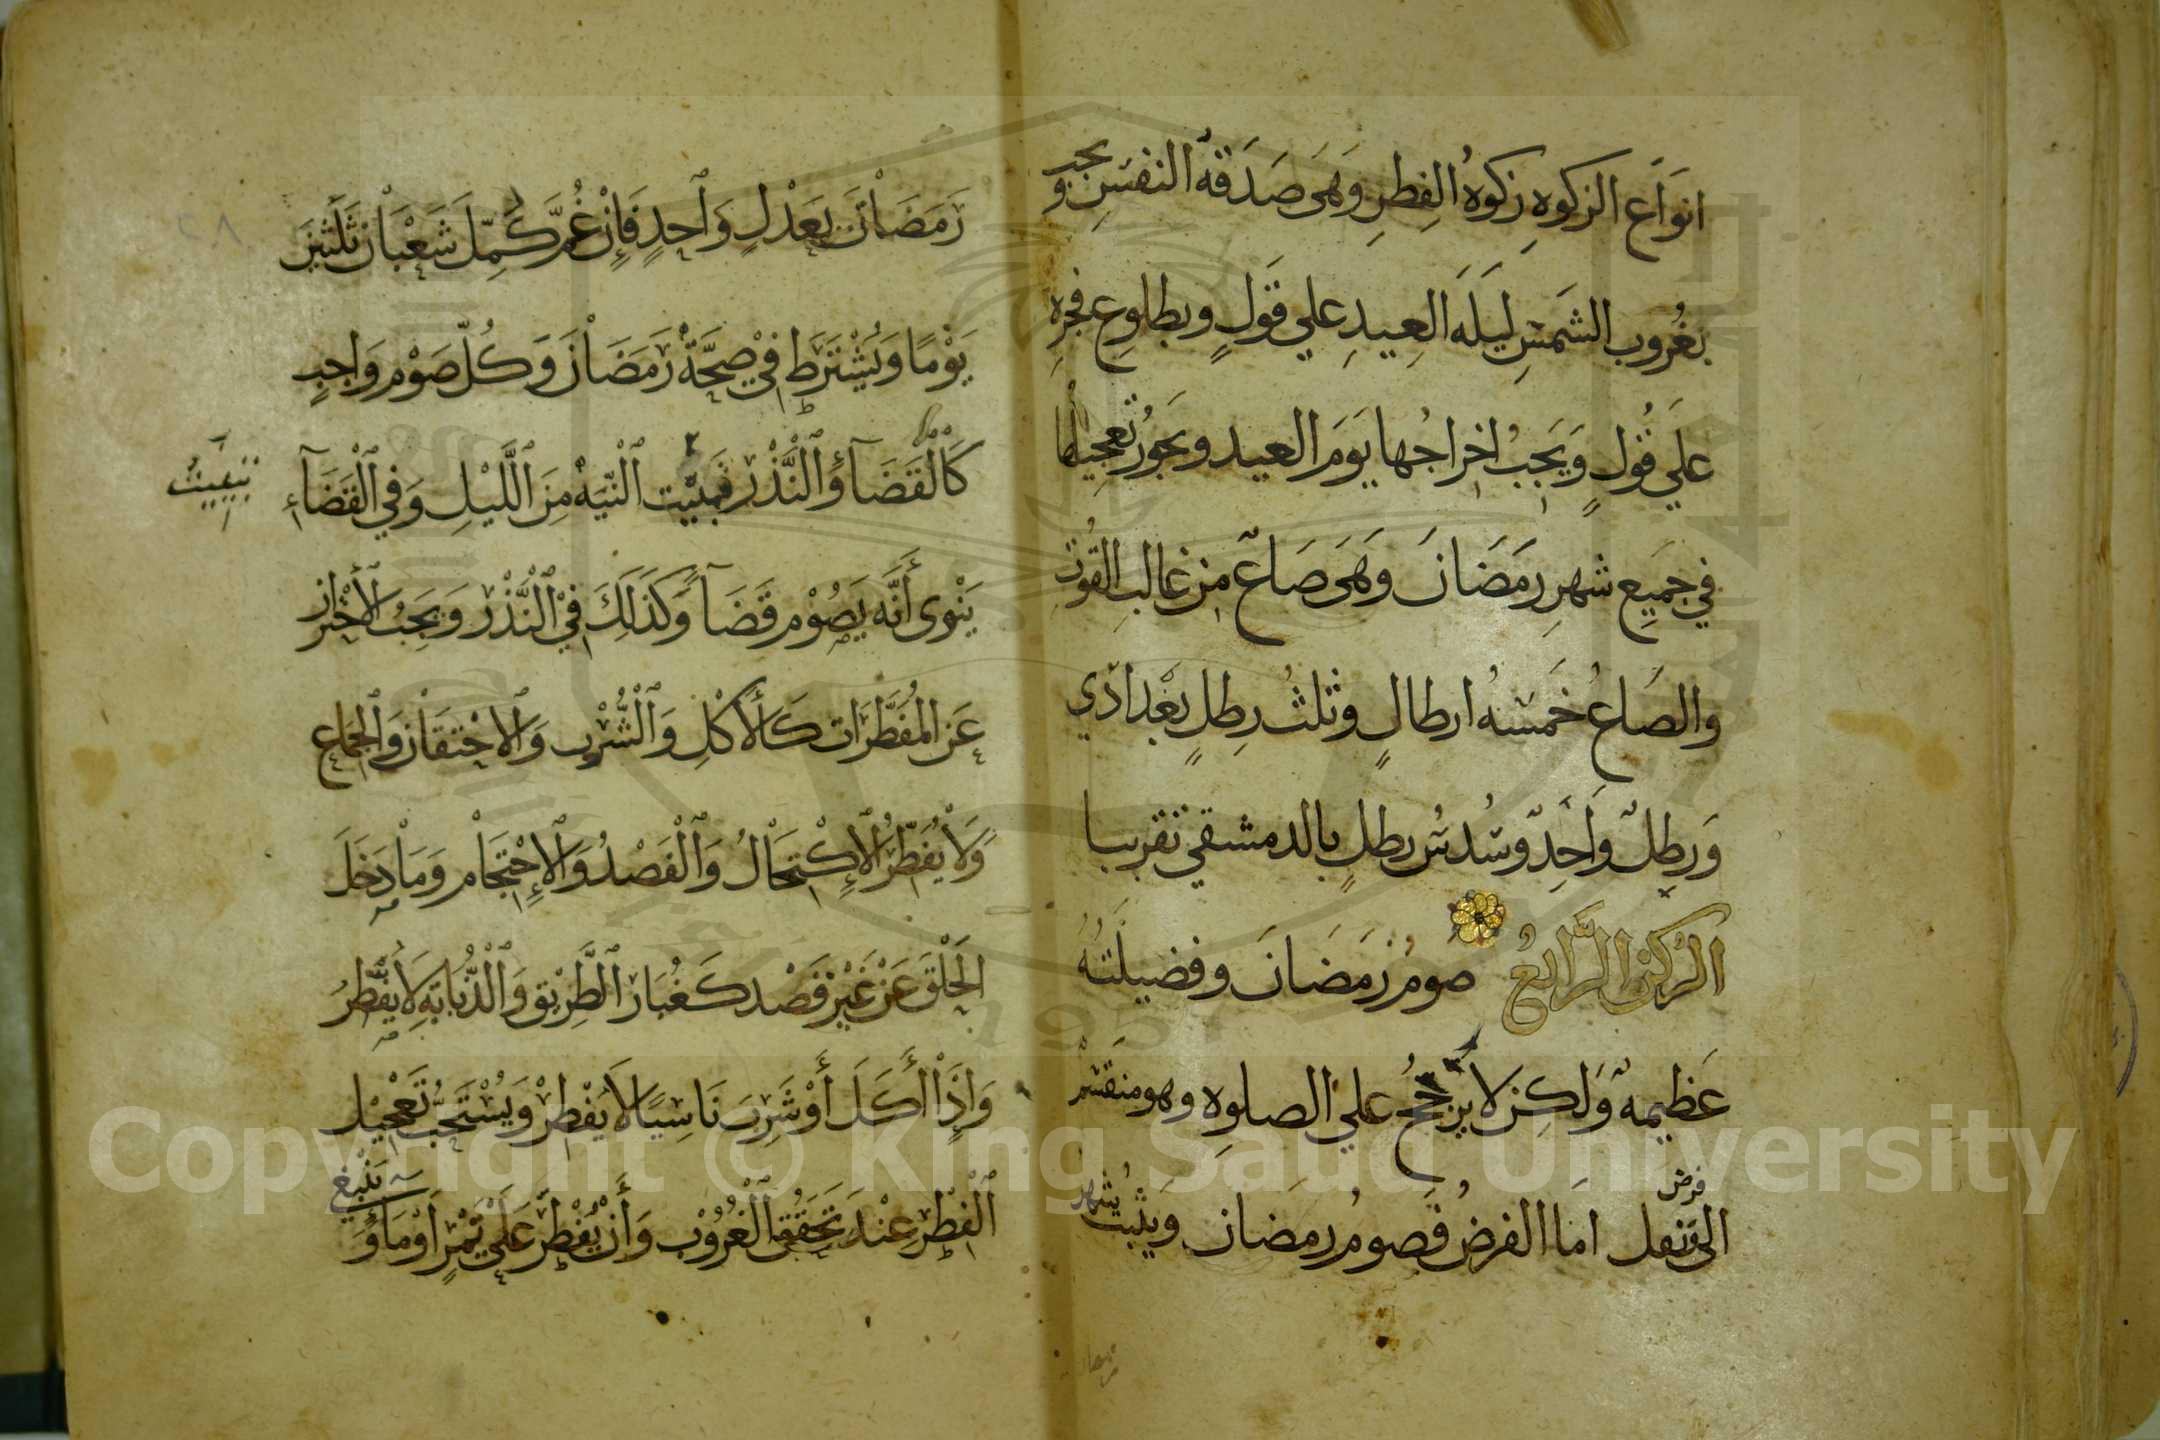 انوَاع الزكوهِ زكوهُ الفِطرِ وَهَى صَدَقهُ النفسِ وتجب
بغُروب الشمسِ ليلَه العِيدِ علي قَولٍ وبطلوعِ فجرِه
علَي قولٍ وَيَجبُ اخراجُها يَومَ العيد ويجوز تعجيلها
في جميعِ شهرِ رمَضَانَ وَهَى صَاعٌ من غالب القُوت
والصَاعُ خَمسهُ ارطالٍ وثلثُ رِطلٍ بَغدادي
وَرطلٌ واحِدٌ وسُدسُ رطلٍ بالدمشقي تقريبا
الركن الرابعُ صَومُ رمَضَانَ وفضيلتُهُ
عَظيمهٌ وَلكِن لا يرجحُ علي الصلوهِ وهو منقسم
الى فرض ونفل امَا الفرضُ فَصومُ رمضان وَيثبت شهر
رَمَضَانَ بِعَدْلٍ وَاحدٍ فَإن غُمَّ كَمِّل شَعْبَانَ ثَلثين
يَوْمًا وَيُشْتَرط في صِحَّة رَمَضَانَ وَكُلّ صَوْمٍ وَاجبٍ
كَالْقَضَآء وَالنَّذْر تبييت النّية مِنَ اللَّيْلِ وَفي الْقَضَآء
تبييت
يَنْوى أنَّه يَصُوْم قَضَآءً وَكذَلكَ في النَّذْر وَيَجبُ الاحْتراز
عَن المُفَطّرَات كَالأكْلِ وَالشُّرْب وَالاحْتقَان وَالجمَاع
وَلَا يُفَطّرُ الإكْتحَالُ وَالْفَصْدُ وَالإحْتجَام وَمَا دَخَلَ
الْحَلْقَ عَنْ غَيْر قَصْد كَغُبَار الطَّرِيْق وَالذُّبَابَةِ لَا يُفَطّرُ
وَإذَا أكَلَ أوْ شَرِبَ نَاسيًا لَا يفْطرْ وَيُسْتَحَبُّ تَعْجيْل
الْفِطْر عِنْدَ تَحَقُّق الْغُرُوْب وَأنْ يُفْطرَ عَلَى تَمْرٍ أوْ مَآءٍ وَ يَنْبغي
رمضان
Copyright © King Saud University
1957